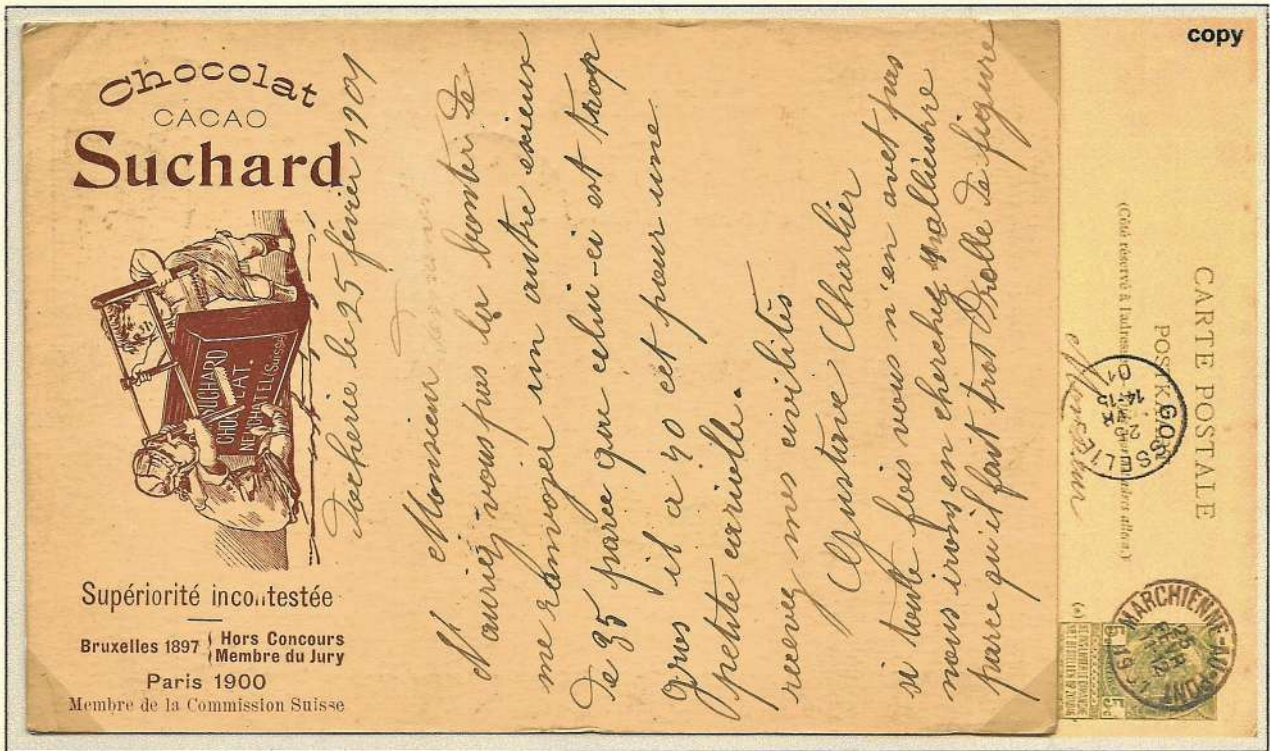 copy
Chocolat
CACAO
Suchard
SUCHARD
CHOCOLAT
NEUCHATEL (SUISSE)
Supériorité incontestée
Bruxelles 1897 { Hors Concours
Membre du Jury
Paris 1900
Membre de la Commission Suisse
Docherie le 25 février 1901
Monsieur
N'auriez vous pas la bonter de
me ranvojer un autre essieux
de 35 parce que celui-ci est trop
gros il a 40 cet pour une
petite carriolle.
recevez mes civilités
Gustave Charlier
si toute fois vous n'en avet pas
nous irons en cherchez
parce qu'il fait trot drolle de figure
CARTE POSTALE
POSTKAART
(Côté réservé à l'adresse
Monsieur
GOSSELIES
14-15
01
MARCHIENNE-AU-PONT
25
FEVR
12
5c